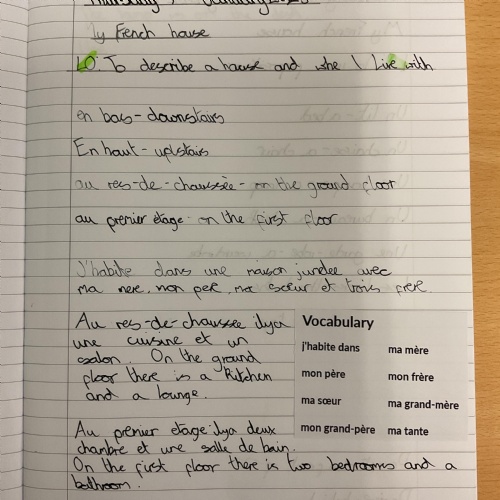 My French house
LO: To describe a house and who I Live with
en bas - downstairs
En haut - upstairs
au res-de-chaussée - on the ground floor
au premier étage - on the first floor
J'habite dans une maison jumelée avec
ma mere, mon pere, ma sœur et trois frere
Au res-de-chaussée ilya
une cuisine et un
salon. On the ground
floor there is a kitchen
and a lounge.
Vocabulary
j'habite dans ma mère
mon père mon frère
ma sœur ma grand-mère
mon grand-père ma tante
Au premier étage ilya deux
chambre et une salle de bain.
On the first floor there is two bedrooms and a
bathroom.